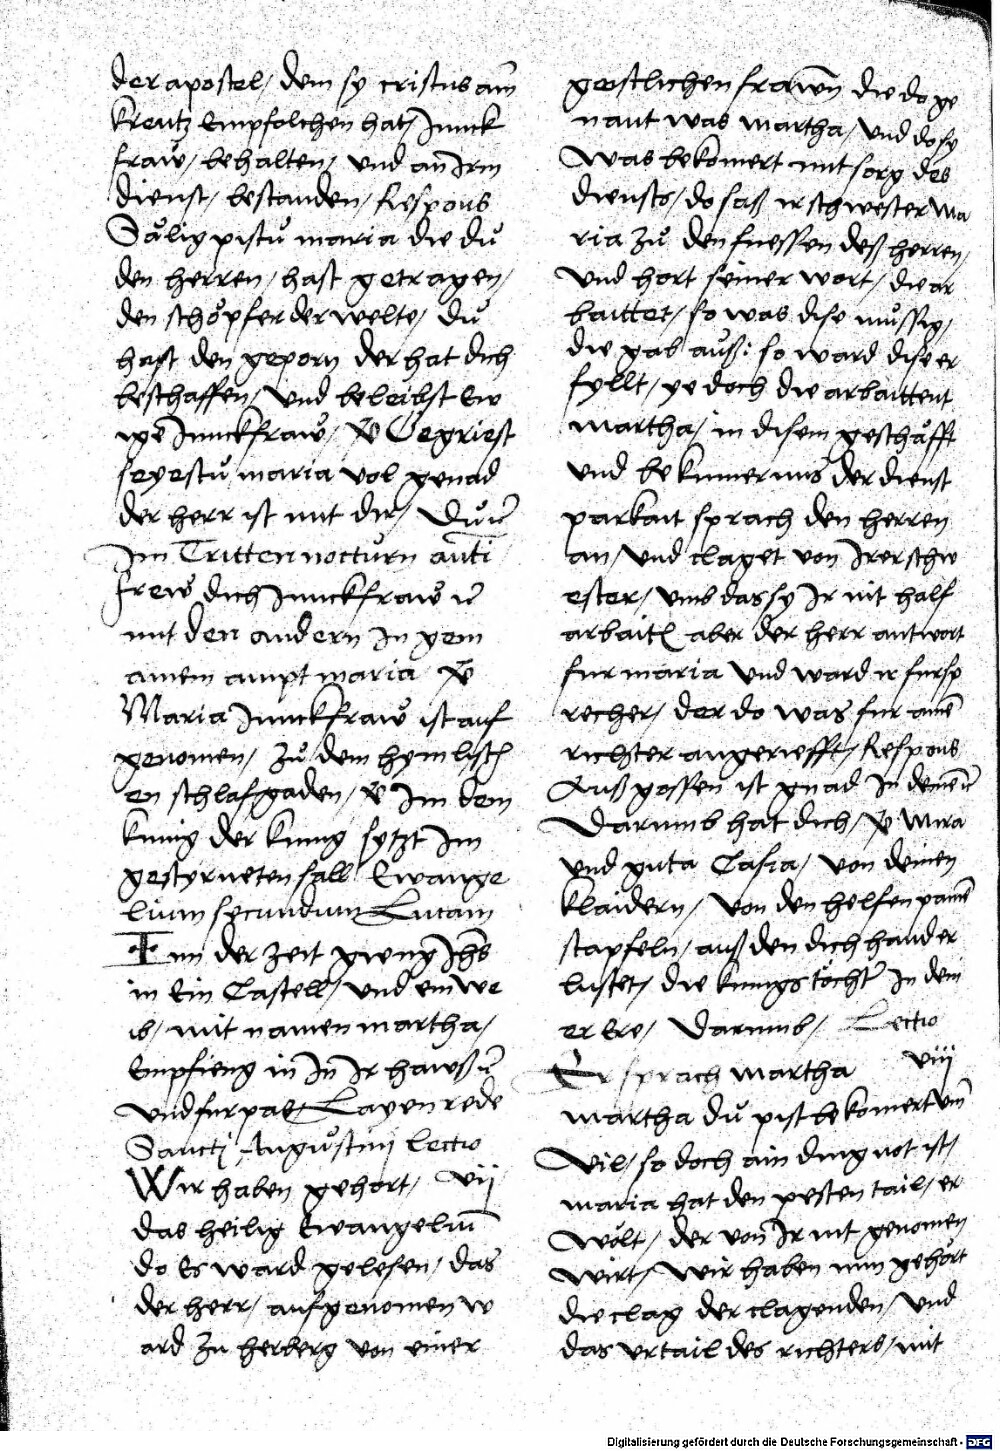 der apostel / dem sy cristus am̄
kreutz Empfolchen hat / Junck
fraw̆ / behalten / vnd an Irm
dienst / bestanden / Respons
Sälig pistu maria die du
den herren / hast getragen /
den schöpfer der welte / du
hast den geporn der hat dich
beschaffen / vnd beleibst Ew
igē Junckfraw̆ / V Gegriest
seyestu maria vol genad
der herr ist mit dir /
Im Tritten nocturn anti
frew dich Junckfraw̆
mit den andern In gem
ainem ampt maria V
Maria Junckfraw̆ ist auf
genomen / zu dem hymlisch
en schlafgaden / V Im dem
kunig der kunig sytzt Im
gestyrneten sall Ewange
lium secundum Lucam
In der zeit gieng Ihs
in Ein Castell / vnd ein we
ib / mit namen martha /
Empfieng in In Ir hawß
vnd furpas / Layen rede
Sancti Augustini lectio
Wir haben gehort / vij
das heilig Ewangeliū
do Es ward gelesen / das
der herr / aufgenomen w
ard zu herberg von einer
geistlichen frawn̄ die do ge
nant was martha / vnd do sy
was bekomert mit sorg des
diensts / do saß ir schwester Ma
ria zu den fuessen deß herren /
vnd hort seiner wort / die ar
baittet / so was dise mussig /
die gab auß : so ward dise er
fyllt / ye doch die arbaittent
martha / in disem geschäfft
vnd bekumernus der dienst
parkait sprach den herren
an / vnd claget von Irer schw
ester / vmb das sy Ir nit half
arbaitē aber der herr antwort
fur maria vnd ward ir fursp
recher / der do was fur ainē
richter angeriefft / Respons
Auß gossen ist gnad In deinē
Darumb hat dich / V Mira
vnd guta Casia / von deinen
klaidern / von den helfenpainē
stapfeln / auß den dich hand er
lustet / die kunigs töchter In dein
er Ere / Darumb / Lectio
Er sprach martha viij
martha du pist bekomert vm̄
vil / so doch ain ding not ist /
maria hat den pesten tail / er
wölt / der von Ir nit genomen
wirt / Wir haben nun gehört
die clag der clagenden / vnd
das vrtail des richters / mit
Digitalisierung gefördert durch die Deutsche Forschungsgemeinschaft - DFG